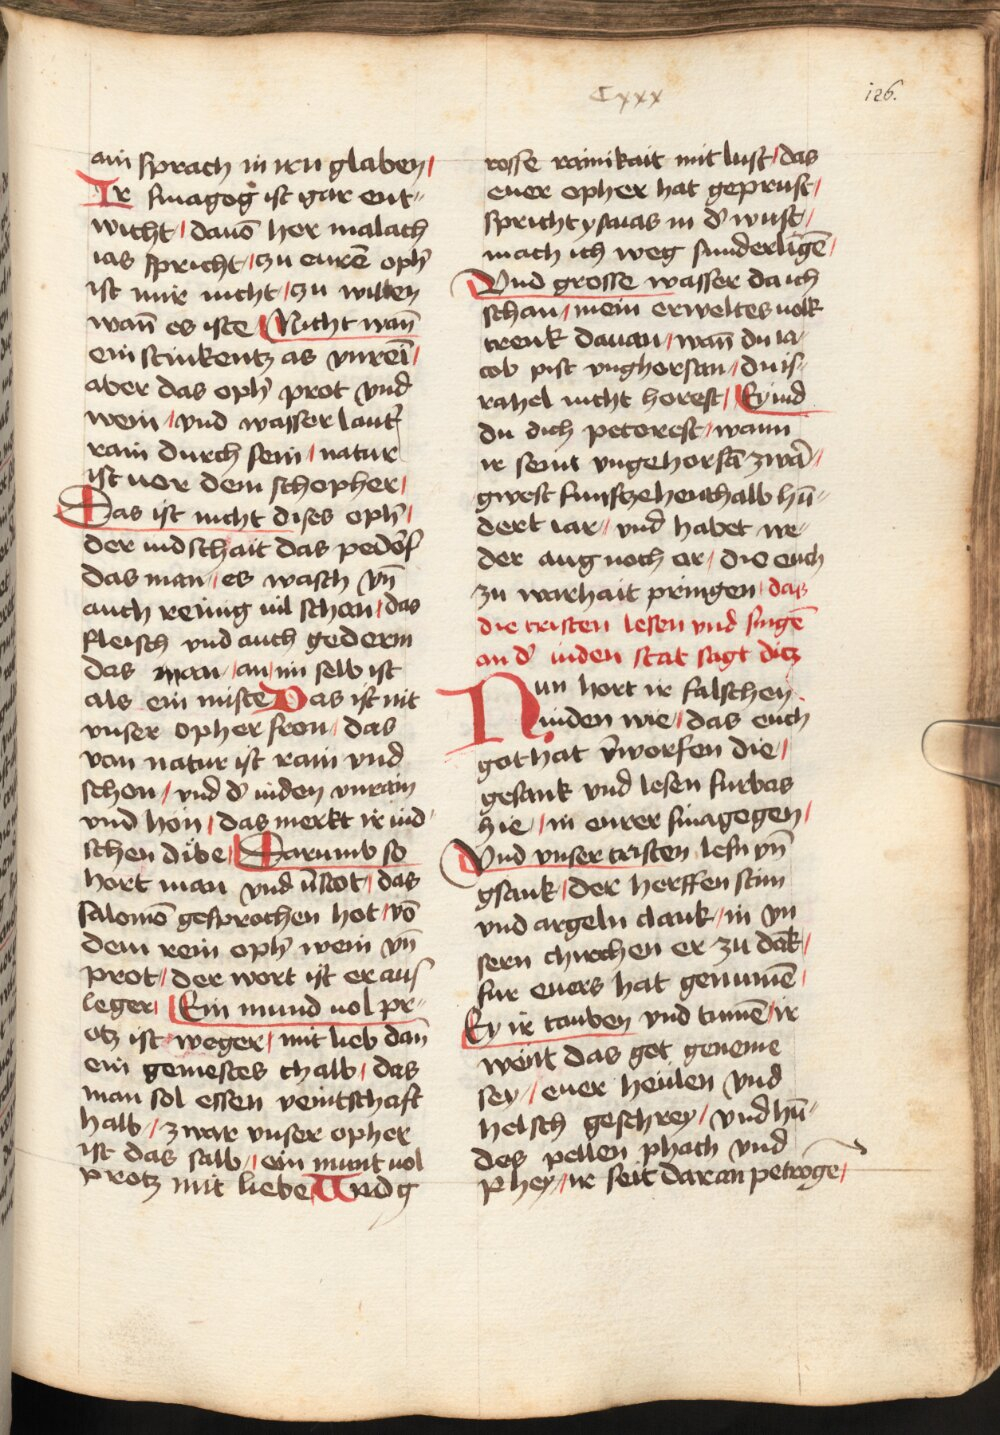 Cxxx
126.
ain sprach in irn glaben /
Ir sinagog ist gar ent-
wicht / dauō her malach
ias spricht / zu eurē oph̄
ist mir nicht / zu willen
wan̄ es iste / Nicht wan̄
ein stinkentz as vnrein /
aber das oph̄ prot vnd
wein / vnd wasser laut̄
rain durch sein / natur
ist uor dem schopher /
Das ist nicht dises oph̄ /
der iudschait das pedōrf
das man / es wasch vn̄
auch reinig uil schon / das
fleisch vnd auch gederm
das man / an im selb ist
als ein miste Das ist nit
vnser opher fron / das
von natur ist rain vnd
schon / vnd d' iuden vnrain
vnd hon / das merkt ir iud-
schen dibe / Darumb so
hort man vnd v̄stot / das
salomō gesprochen hot / vō
dem rein oph̄ wein vn̄
prot / der wort ist er aus
leger / Ein mund uol pr-
otz ist weger / mit lieb dan̄
ein gemestes chalb / das
man sol essen veintschaft
halb / zwar vnser opher
ist das salb / ein munt uol
protz mit liebe Wrd g
rosse rainikait mit lust / das
euer opher hat geprust /
spricht ysaias in d' wust /
mach ich weg sunderligē /
Vnd grosse wasser da ich
schau / mein erweltes uolk
trenk dauan / wan̄ du ia-
cob pist vnghorsan / du is-
rahel nicht horest / Ey iud
du dich petorest / wann
ir seint vngehorsā zwā /
gwest funfzehenthalb hū-
dert iar / vnd habet we-
der aug noch or / die euch
zu warhait pringen / das
die cristen lesen vnd singē
an d' iuden stat sagt ditz
Nun hort ir falschen
iuden wie / das euch
got hat v̄worfen die /
gesank vnd lesen furbas
hie / in eurer sinagogen /
Vnd vnser cristen lesn vn̄
gsank / der herffen stim
vnd argeln clank / in vn
sern chirchen er zu dāk /
fur euers hat genumē /
Ey ir tauben vnd tumē / ir
wönt das got geneme
sey / euer heulen vnd
helsch geschrey / vnd hū-
des pellen phach vnd
phey / ir seit daran petroge /